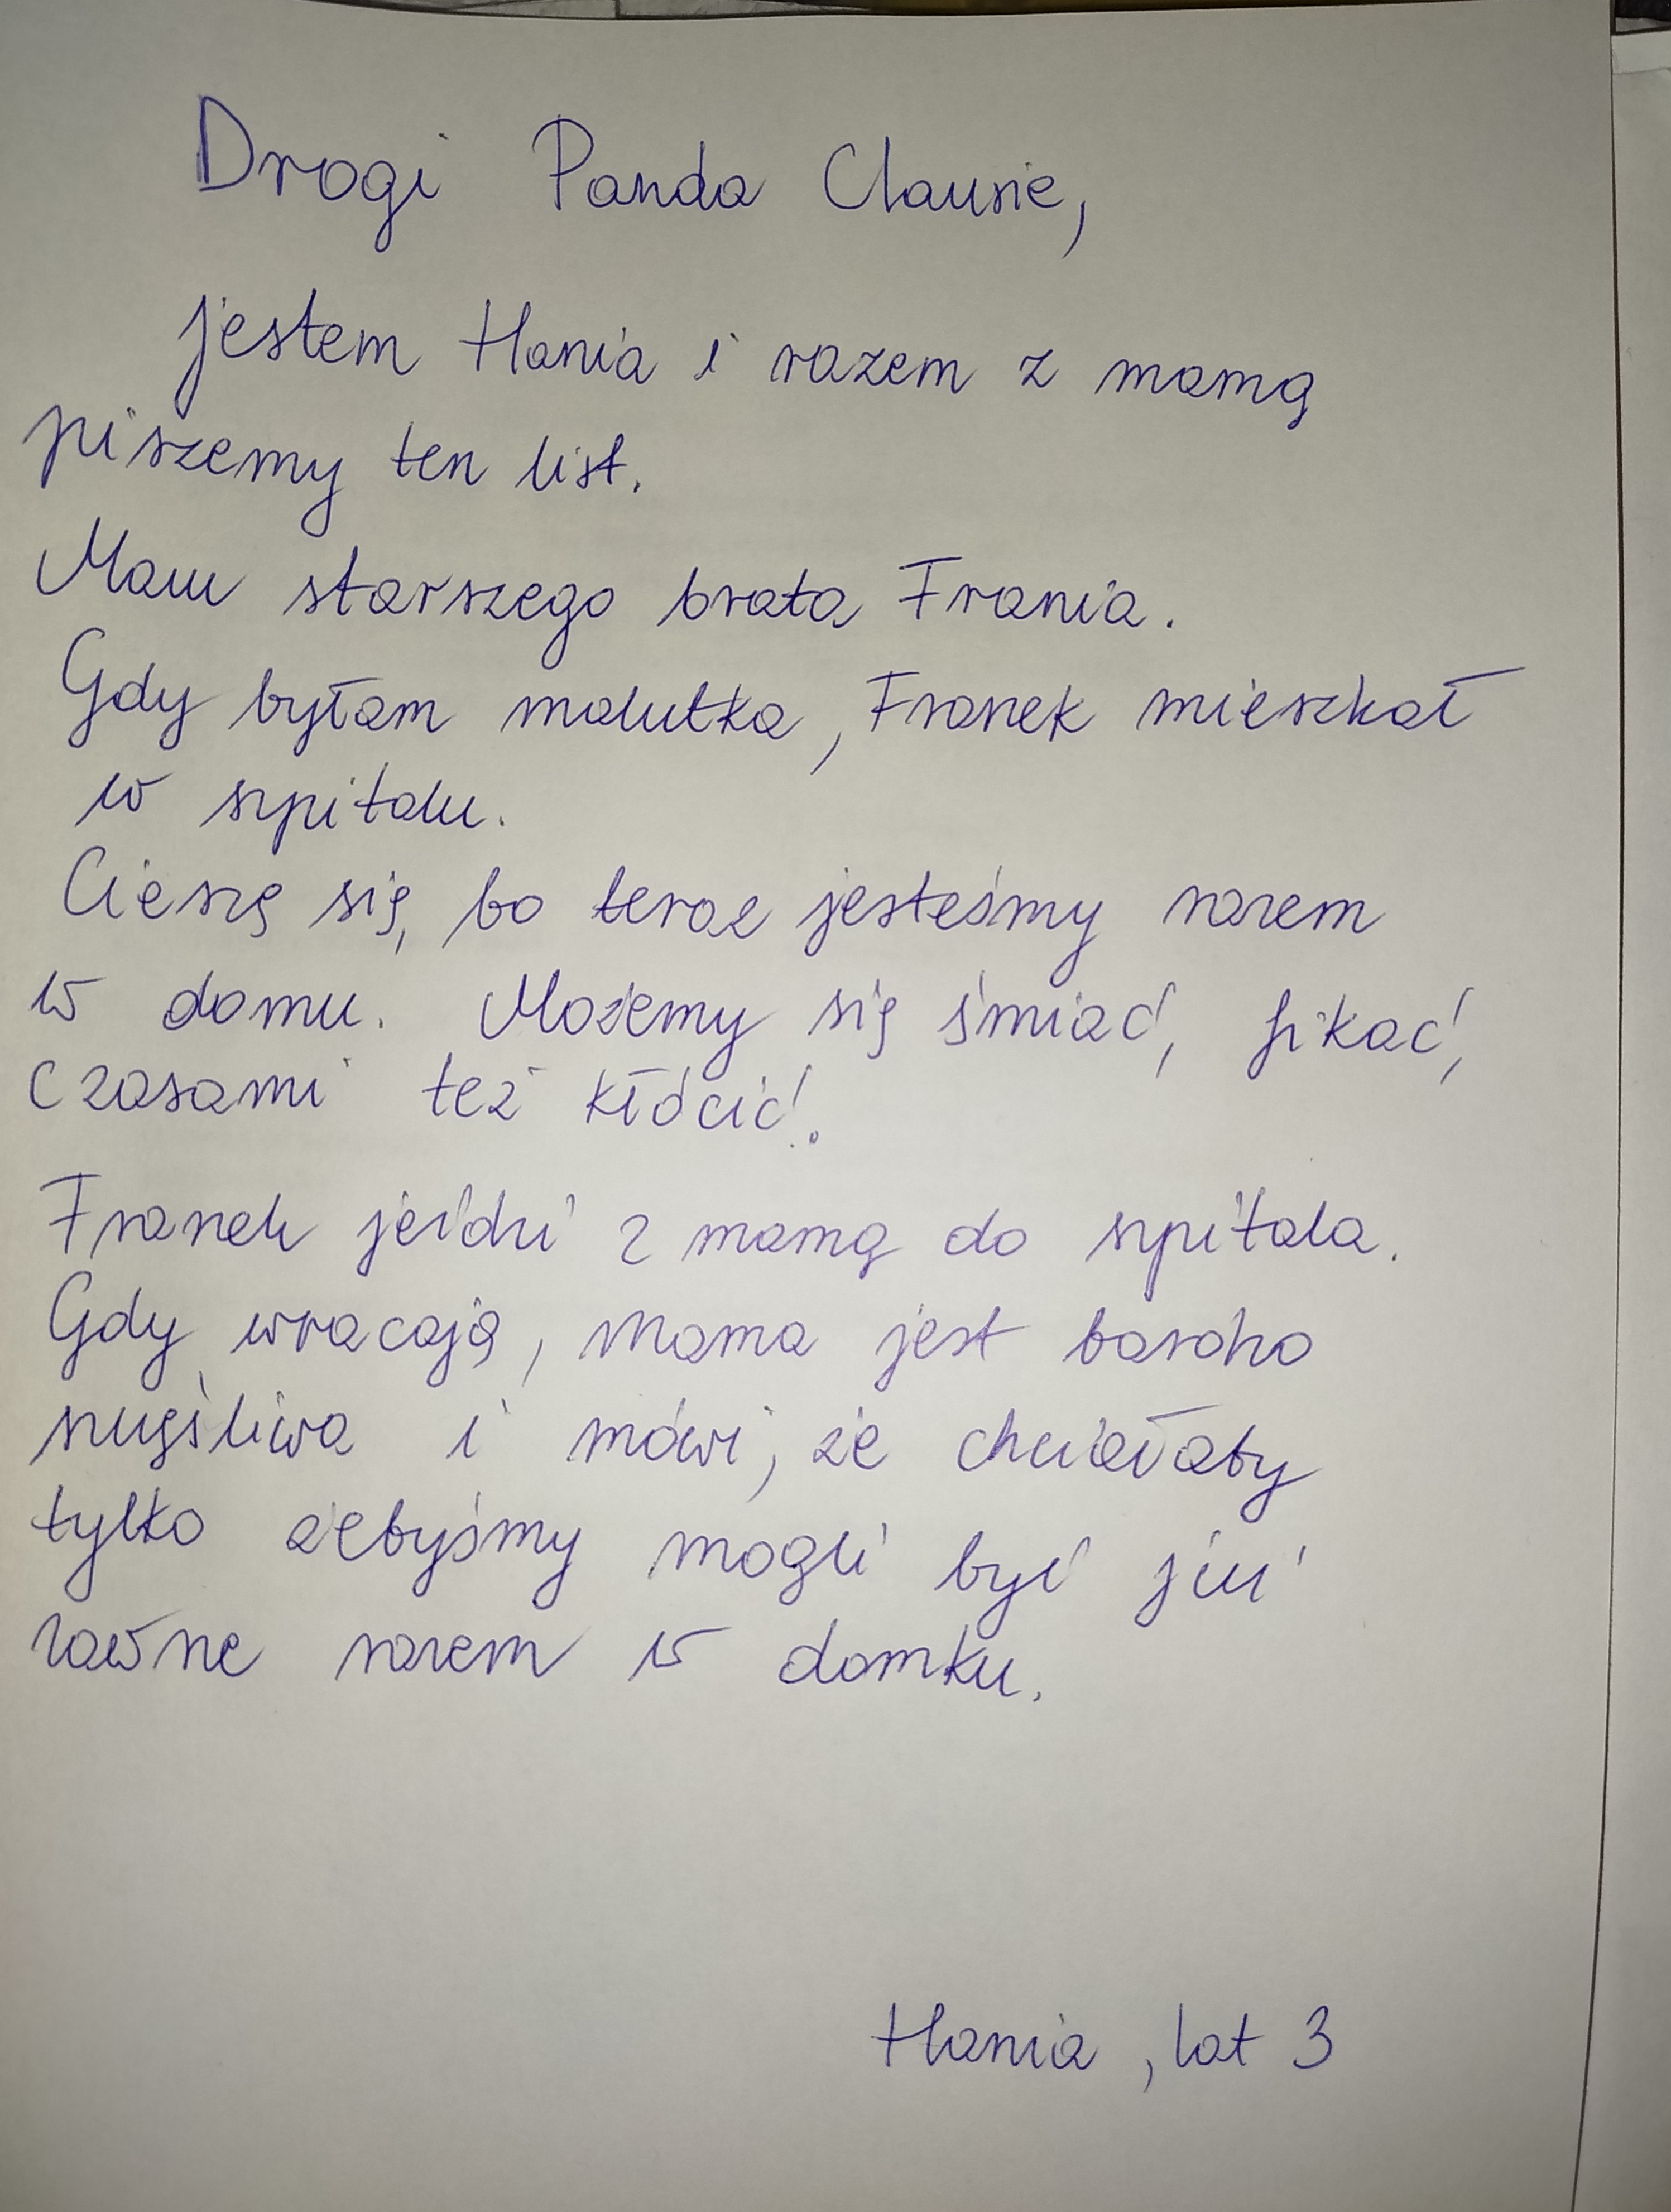 Drogi Panda Clausie,
jestem Hania i razem z mamą
piszemy ten list.
Mam starszego brata Frania.
Gdy byłam malutka, Franek mieszkał
w szpitalu.
Cieszę się, bo teraz jesteśmy razem
w domu. Możemy się śmiać, fikać,
czasami też kłócić.
Franek jeździ z mamą do szpitala.
Gdy wracają, mama jest bardzo
szczęśliwa i mówi, że chciałaby
tylko żebyśmy mogli być już
zawsze razem w domku.
Hania, lat 3